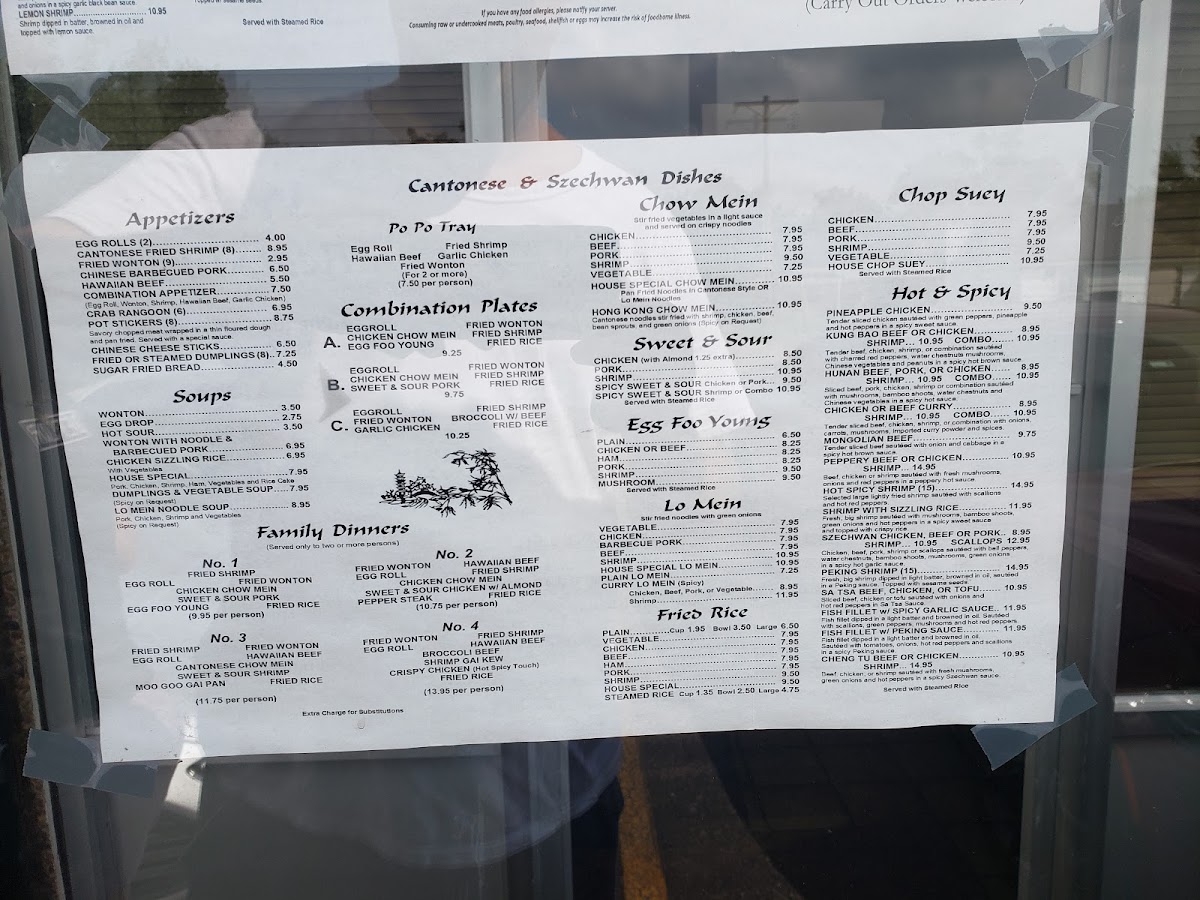 and onions in a spicy garlic black bean sauce.
LEMON SHRIMP.................. 10.95
Shrimp dipped in batter, browned in oil and
topped with lemon sauce.
Topped w/ sesame seeds.
Served with Steamed Rice
If you have any food allergies, please notify your server.
Consuming raw or undercooked meats, poultry, seafood, shellfish or eggs may increase the risk of foodborne illness.
(Carry Out Orders Welcome)
Cantonese & Szechwan Dishes
Appetizers
EGG ROLLS (2)........ 4.00
CANTONESE FRIED SHRIMP (8)........ 8.95
FRIED WONTON (9)........ 2.95
CHINESE BARBECUED PORK........ 6.50
HAWAIIAN BEEF........ 5.50
COMBINATION APPETIZER........ 7.50
(Egg Roll, Wonton, Shrimp, Hawaiian Beef, Garlic Chicken)
CRAB RANGOON (6)........ 6.95
POT STICKERS (8)........ 8.75
Savory chopped meat wrapped in a thin floured dough
and pan fried. Served with a special sauce.
CHINESE CHEESE STICKS........ 6.50
FRIED OR STEAMED DUMPLINGS (8).. 7.25
SUGAR FRIED BREAD........ 4.50
Soups
WONTON........ 3.50
EGG DROP........ 2.75
HOT SOUR........ 3.50
WONTON WITH NOODLE &
BARBECUED PORK........ 6.95
CHICKEN SIZZLING RICE........ 6.95
With Vegetables
HOUSE SPECIAL........ 7.95
Pork, Chicken, Shrimp, Ham, Vegetables and Rice Cake
DUMPLINGS & VEGETABLE SOUP.... 7.95
(Spicy on Request)
LO MEIN NOODLE SOUP........ 8.95
Pork, Chicken, Shrimp and Vegetables
(Spicy on Request)
Po Po Tray
Egg Roll Fried Shrimp
Hawaiian Beef Garlic Chicken
Fried Wonton
(For 2 or more)
(7.50 per person)
Combination Plates
A.
EGGROLL FRIED WONTON
CHICKEN CHOW MEIN FRIED SHRIMP
EGG FOO YOUNG FRIED RICE
9.25
B.
EGGROLL FRIED WONTON
CHICKEN CHOW MEIN FRIED SHRIMP
SWEET & SOUR PORK FRIED RICE
9.75
C.
EGGROLL FRIED SHRIMP
FRIED WONTON BROCCOLI W/ BEEF
GARLIC CHICKEN FRIED RICE
10.25
Family Dinners
(Served only to two or more persons)
No. 1
FRIED SHRIMP
EGG ROLL FRIED WONTON
CHICKEN CHOW MEIN
SWEET & SOUR PORK
EGG FOO YOUNG FRIED RICE
(9.95 per person)
No. 2
FRIED WONTON HAWAIIAN BEEF
EGG ROLL FRIED SHRIMP
CHICKEN CHOW MEIN
SWEET & SOUR CHICKEN w/ ALMOND
PEPPER STEAK FRIED RICE
(10.75 per person)
No. 3
FRIED SHRIMP FRIED WONTON
EGG ROLL HAWAIIAN BEEF
CANTONESE CHOW MEIN
SWEET & SOUR SHRIMP
MOO GOO GAI PAN FRIED RICE
(11.75 per person)
No. 4
FRIED WONTON FRIED SHRIMP
EGG ROLL HAWAIIAN BEEF
BROCCOLI BEEF
SHRIMP GAI KEW
CRISPY CHICKEN (Hot Spicy Touch)
FRIED RICE
(13.95 per person)
Extra Charge for Substitutions
Chow Mein
Stir fried vegetables in a light sauce
and served on crispy noodles
CHICKEN........ 7.95
BEEF........ 7.95
PORK........ 7.95
SHRIMP........ 9.50
VEGETABLE........ 7.25
HOUSE SPECIAL CHOW MEIN........ 10.95
Pan Fried Noodles in Cantonese Style OR
Lo Mein Noodles
HONG KONG CHOW MEIN........ 10.95
Cantonese noodles stir fried with shrimp, chicken, beef,
bean sprouts, and green onions (Spicy on Request)
Sweet & Sour
CHICKEN (with Almond 1.25 extra)........ 8.50
PORK........ 8.50
SHRIMP........ 10.95
SPICY SWEET & SOUR Chicken or Pork... 9.50
SPICY SWEET & SOUR Shrimp or Combo 10.95
Served with Steamed Rice
Egg Foo Young
PLAIN........ 6.50
CHICKEN OR BEEF........ 8.25
HAM........ 8.25
PORK........ 8.25
SHRIMP........ 9.50
MUSHROOM........ 9.50
Served with Steamed Rice
Lo Mein
Stir fried noodles with green onions
VEGETABLE........ 7.95
CHICKEN........ 7.95
BARBECUE PORK........ 7.95
BEEF........ 7.95
SHRIMP........ 10.95
HOUSE SPECIAL LO MEIN........ 10.95
PLAIN LO MEIN........ 7.25
CURRY LO MEIN (Spicy)
Chicken, Beef, Pork, or Vegetable........ 8.95
Shrimp........ 11.95
Fried Rice
PLAIN........Cup 1.95 Bowl 3.50 Large 6.50
VEGETABLE........ 7.95
CHICKEN........ 7.95
BEEF........ 7.95
HAM........ 7.95
PORK........ 7.95
SHRIMP........ 9.50
HOUSE SPECIAL........ 9.50
STEAMED RICE Cup 1.35 Bowl 2.50 Large 4.75
Chop Suey
CHICKEN........ 7.95
BEEF........ 7.95
PORK........ 7.95
SHRIMP........ 9.50
VEGETABLE........ 7.25
HOUSE CHOP SUEY........ 10.95
Served with Steamed Rice
Hot & Spicy
PINEAPPLE CHICKEN........ 9.50
Tender sliced chicken sautéed with green peppers, pineapple
and hot peppers in a spicy sweet sauce.
KUNG BAO BEEF OR CHICKEN........ 8.95
SHRIMP... 10.95 COMBO........ 10.95
Tender beef, chicken, shrimp, or combination sautéed
with charred red peppers, water chestnuts mushrooms,
Chinese vegetables and peanuts in a spicy hot brown sauce.
HUNAN BEEF, PORK, OR CHICKEN........ 8.95
SHRIMP... 10.95 COMBO........ 10.95
Sliced beef, pork, chicken, shrimp or combination sautéed
with mushrooms, bamboo shoots, water chestnuts and
Chinese vegetables in a spicy hot sauce.
CHICKEN OR BEEF CURRY........ 8.95
SHRIMP... 10.95 COMBO........ 10.95
Tender sliced beef, chicken, shrimp, or combination with onions,
carrots, mushrooms, imported curry powder and spices.
MONGOLIAN BEEF........ 9.75
Tender sliced beef sautéed with onion and cabbage in a
spicy hot brown sauce.
PEPPERY BEEF OR CHICKEN........ 10.95
SHRIMP... 14.95
Beef, chicken or shrimp sautéed with fresh mushrooms,
onions and red peppers in a peppery hot sauce.
HOT SPICY SHRIMP (15)........ 14.95
Selected large lightly fried shrimp sautéed with scallions
and hot red peppers.
SHRIMP WITH SIZZLING RICE........ 11.95
Fresh, big shrimp sautéed with mushrooms, bamboo shoots,
green onions and hot peppers in a spicy sweet sauce
and topped with crispy rice.
SZECHWAN CHICKEN, BEEF OR PORK.. 8.95
SHRIMP... 10.95 SCALLOPS 12.95
Chicken, beef, pork, shrimp or scallops sautéed with bell peppers,
water chestnuts, bamboo shoots, mushrooms, green onions
in a spicy hot garlic sauce.
PEKING SHRIMP (15)........ 14.95
Fresh, big shrimp dipped in light batter, browned in oil, sautéed
in a Peking sauce. Topped with sesame seeds.
SA TSA BEEF, CHICKEN, OR TOFU........ 10.95
Sliced beef, chicken or tofu sautéed with onions and
hot red peppers in Sa Tsa Sauce.
FISH FILLET w/ SPICY GARLIC SAUCE.. 11.95
Fish fillet dipped in a light batter and browned in oil. Sautéed
with scallions, green peppers, mushrooms and hot red peppers.
FISH FILLET w/ PEKING SAUCE........ 11.95
Fish fillet dipped in a light batter and browned in oil.
Sautéed with tomatoes, onions, hot red peppers and scallions
in a spicy Peking sauce.
CHENG TU BEEF OR CHICKEN........ 10.95
SHRIMP... 14.95
Beef, chicken, or shrimp sautéed with fresh mushrooms,
green onions and hot peppers in a spicy Szechwan sauce.
Served with Steamed Rice